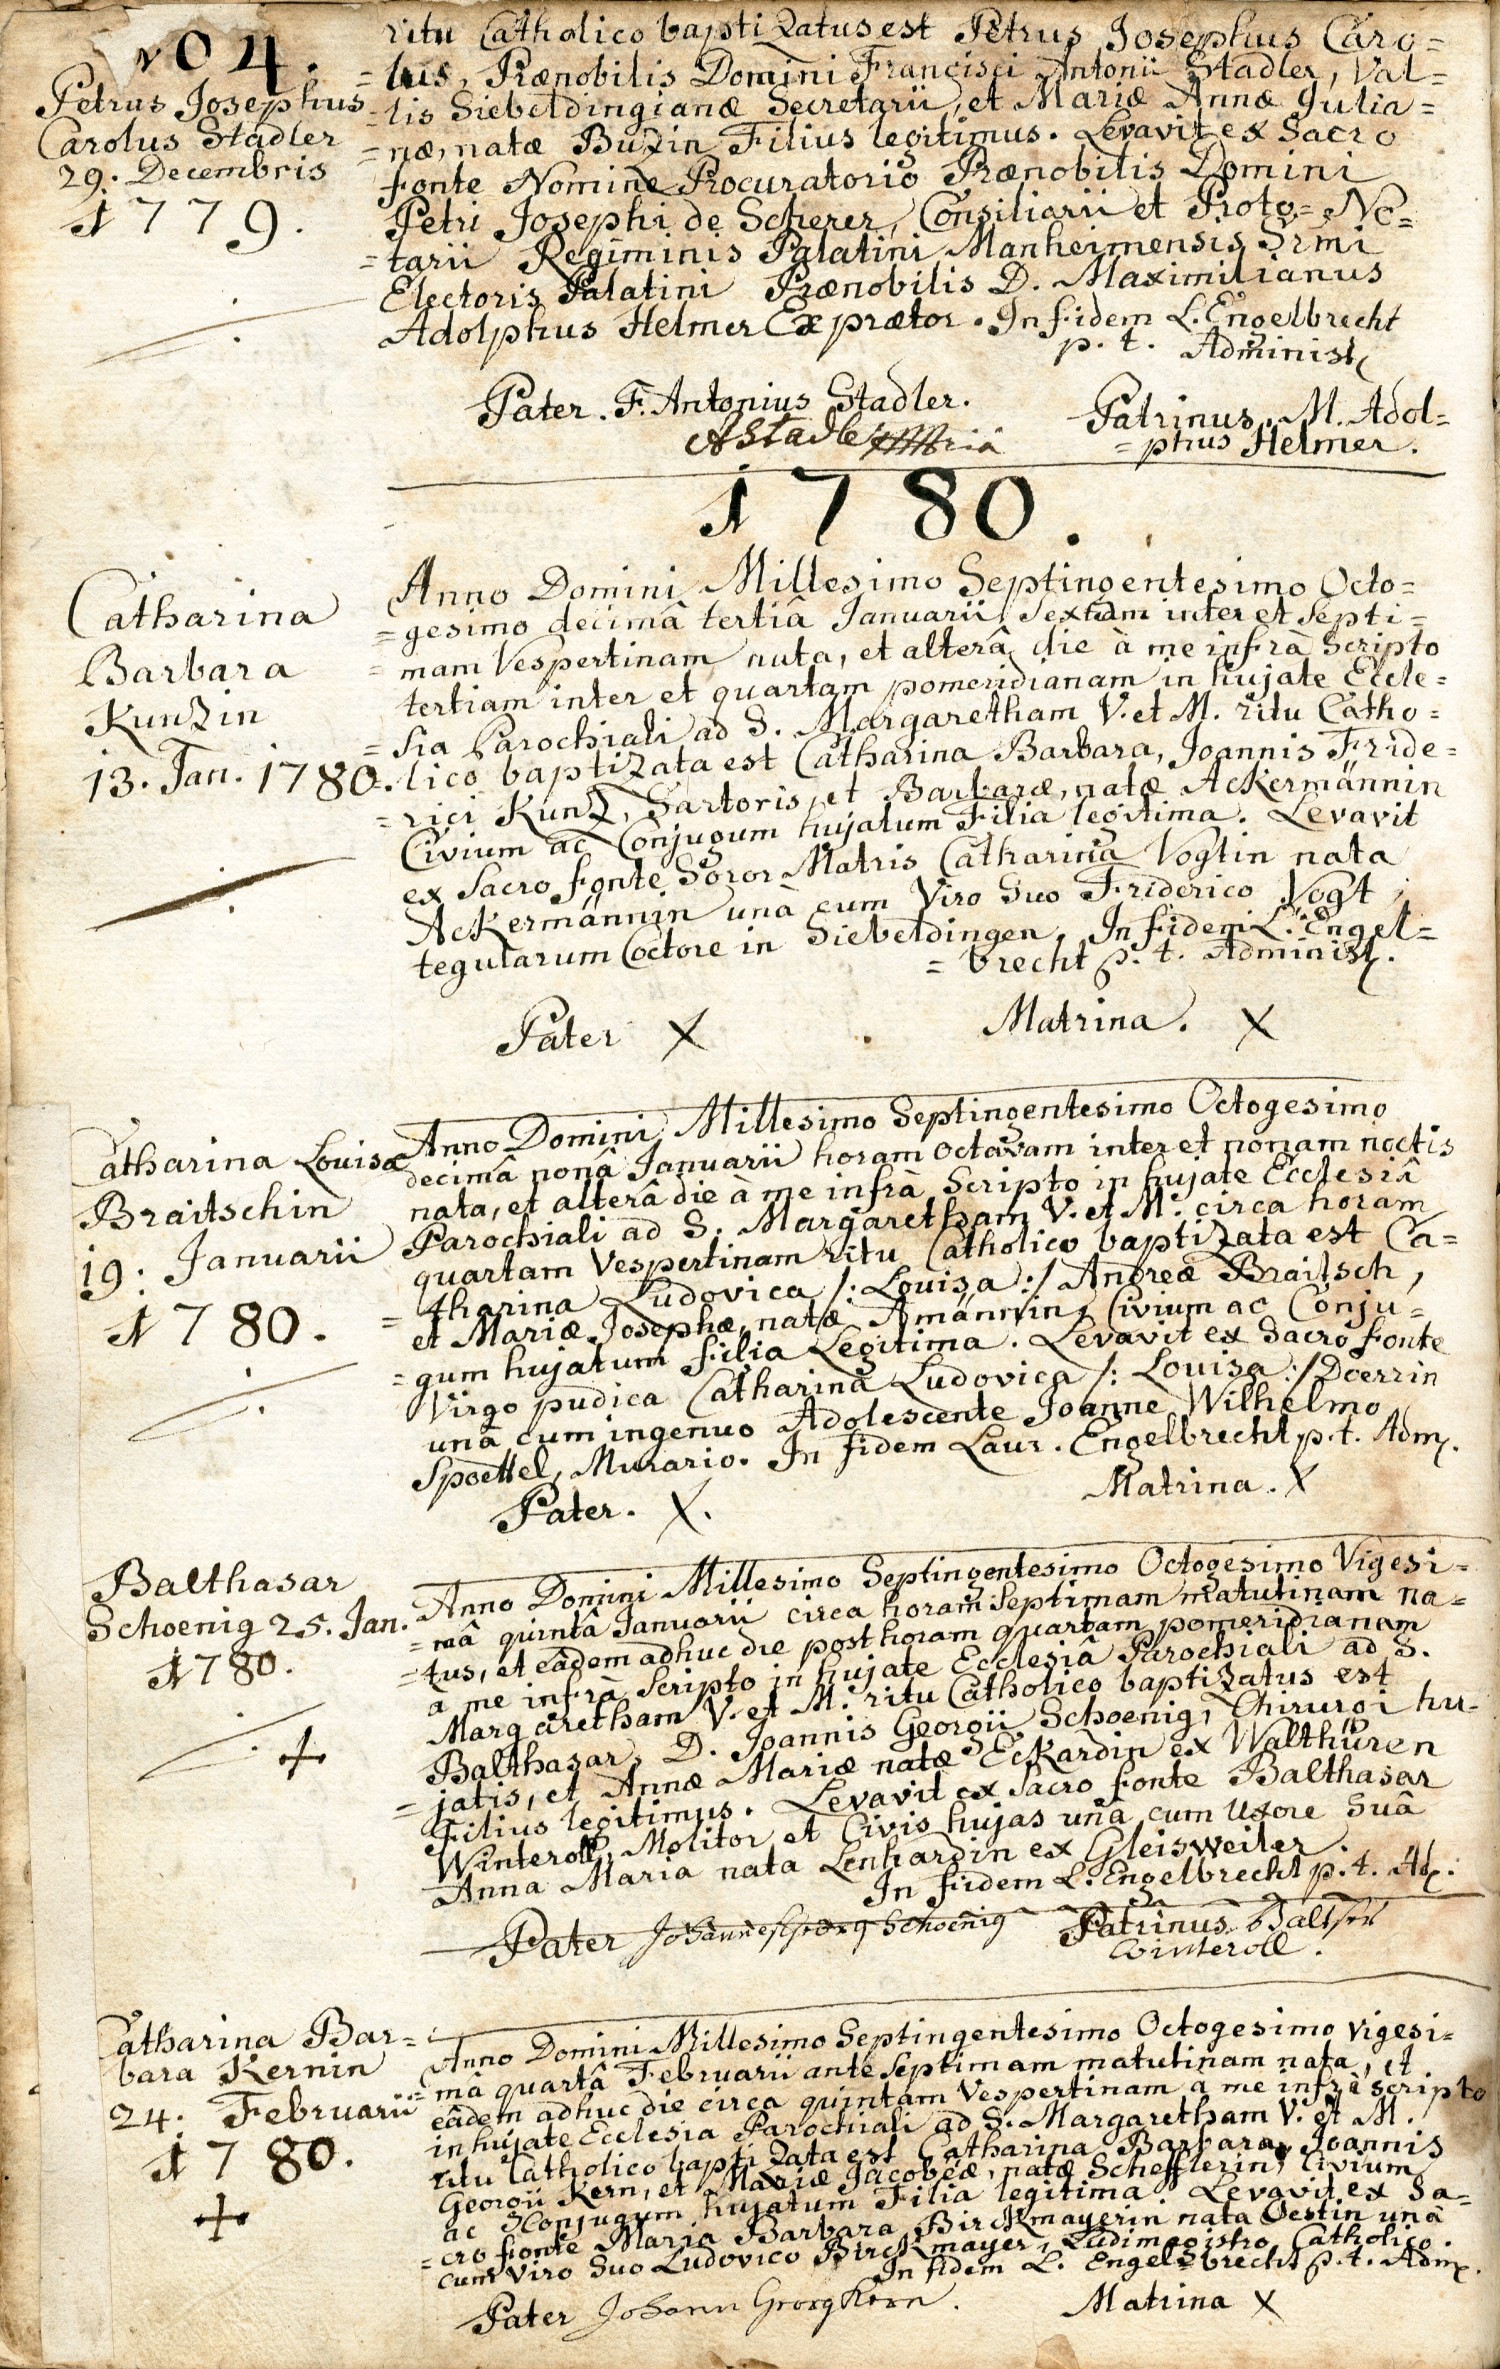 104.
Petrus Josephus
Carolus Stadler
29. Decembris
1779.
ritu Catholico baptizatus est Petrus Josephus Caro=
=lus, Prænobilis Domini Francisci Antonii Stadler, Val=
=lis Siebeldingianæ Secretarii, et Mariæ Annæ Julia=
=næ, natæ Buzin Filius legitimus. Levavit ex Sacro
fonte Nomine Procuratorio Prænobilis Domini
Petri Josephi de Scherer, Consiliarii et Proto=No=
=tarii Regiminis Palatini Manheimensis Srmi
Electoris Palatini Prænobilis D. Maximilianus
Adolphus Helmer Ex prætor. In fidem L. Engelbrecht
p. t. Administ.
Pater. F. Antonius Stadler.
AStadler
Patrinus. M. Adol=
=phus Helmer.
1780.
Catharina
Barbara
Kunzin
13. Jan. 1780.
Anno Domini Millesimo Septingentesimo Octo=
=gesimo decimâ tertiâ Januarii Sextam inter et Septi=
=mam Vespertinam nata, et alterâ die à me infrà Scripto
tertiam inter et quartam pomeridianam in hujate Eccle=
=sia Parochiali ad S. Margaretham V. et M. ritu Catho=
=lico baptizata est Catharina Barbara, Joannis Fride=
=rici Kunz, Sartoris, et Barbaræ, natæ Ackermännin
Civium ac Conjugum hujatum Filia legitima. Levavit
ex Sacro fonte Soror Matris Catharina Vogtin nata
Ackermännin unà cum Viro Suo Friderico Vogt,
tegularum Coctore in Siebeldingen. In fidem L. Engel=
=brecht p. t. Administ.
Pater X
Matrina. X
Catharina Louisa
Braitschin
19. Januarii
1780.
Anno Domini Millesimo Septingentesimo Octogesimo
decimâ nonâ Januarii horam octavam inter et nonam noctis
nata, et alterâ die à me infrà Scripto in hujate Ecclesiâ
Parochiali ad S. Margaretham V. et M. circa horam
quartam Vespertinam ritu Catholico baptizata est Ca=
=tharina Ludovica /: Louisa :/ Andreæ Braitsch,
et Mariæ Josephæ, natæ Amännin, Civium ac Conju=
=gum hujatum filia Legitima. Levavit ex Sacro fonte
Virgo pudica Catharina Ludovica /: Louisa :/ Doerrin
unâ cum ingenuo Adolescente Joanne Wilhelmo
Spoettel, Murario. In fidem Laur. Engelbrecht p. t. Adm.
Pater. X.
Matrina. X
Balthasar
Schoenig 25. Jan.
1780.
+
Anno Domini Millesimo Septingentesimo Octogesimo Vigesi=
=mâ quintâ Januarii circa horam Septimam matutinam na=
=tus, et eâdem adhuc die post horam quartam pomeridianam
a me infrà Scripto in hujate Ecclesiâ Parochiali ad S.
Margaretham V. et M. ritu Catholico baptizatus est
Balthasar, D. Joannis Georgii Schoenig, Chirurgi hu=
=jatis, et Annæ Mariæ natæ Eckardin ex Walthüren
Filius legitimus. Levavit ex Sacro fonte Balthasar
Winteroll, Molitor et Civis hujas unâ cum Uxore Suâ
Anna Maria nata Lenhardin ex Gleisweiler.
In fidem L. Engelbrecht p. t. Ad.
Pater Johannes Georg Schoenig
Patrinus Baltser
Winteroll.
Catharina Bar=
bara Kernin
24. Februarii
1780.
+
Anno Domini Millesimo Septingentesimo Octogesimo vigesi=
=mâ quartâ Februarii ante Septimam matutinam nata, et
eâdem adhuc die circa quintam Vespertinam a me infrà scripto
in hujate Ecclesia Parochiali ad S. Margaretham V. et M.
ritu Catholico baptizata est Catharina Barbara, Joannis
Georgii Kern, et Mariæ Jacobeæ, natæ Schefflerin, Civium
ac Conjugum hujatum Filia legitima. Levavit ex Sa=
=cro fonte Maria Barbara Birckmayerin nata Oestin unâ
cum Viro Suo Ludovico Birckmayer, Ludimagistro Catholico.
In fidem L. Engelbrecht p. t. Adm.
Pater Johann Georg Kern.
Matrina X